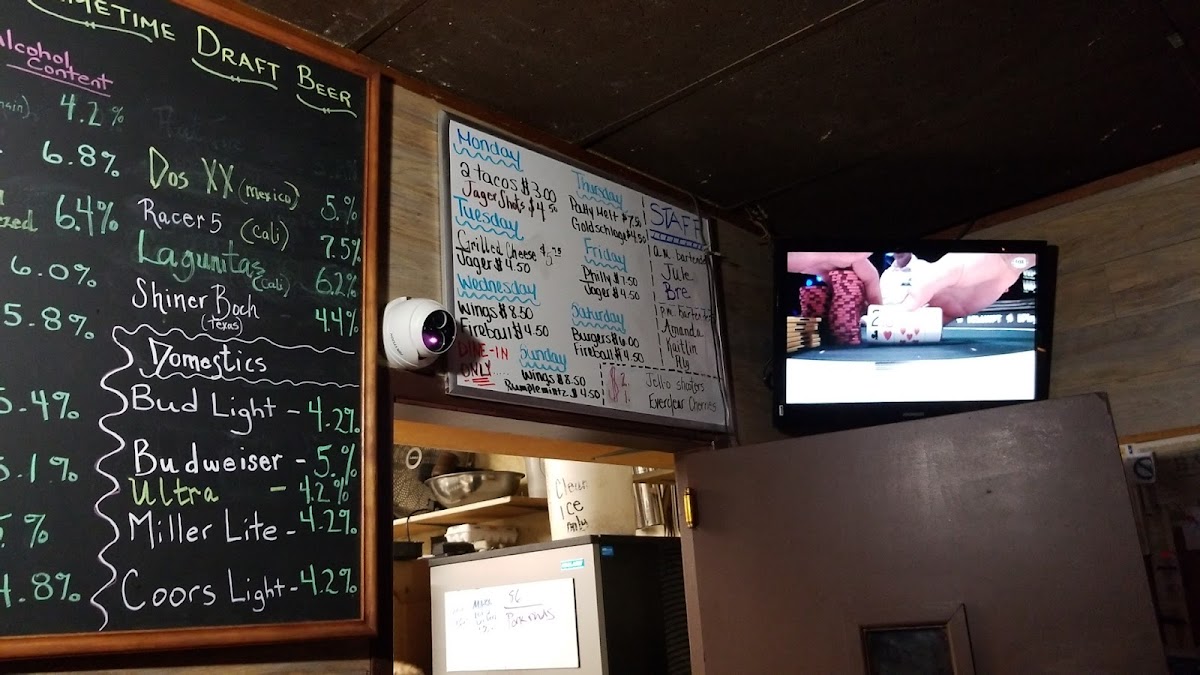 DRAFT BEER
Alcohol
Content
4.2%
6.8%
6.4%
6.0%
5.8%
Dos XX (mexico) 5.%
Racer 5 (Cali) 7.5%
Lagunitas (Cali) 6.2%
Shiner Boch (Texas) 4.4%
Domestics
Bud Light - 4.2%
Budweiser - 5.%
Ultra - 4.2%
Miller Lite - 4.2%
Coors Light - 4.2%
Monday
2 tacos $3.00
Jager Shots $4.50
Tuesday
Grilled Cheese $5.25
Jager $4.50
Wednesday
Wings $8.50
Fireball $4.50
DINE-IN
ONLY
Thursday
Patty Melt $7.50
Goldschlager $4.50
Friday
Philly $7.50
Jager $4.50
Saturday
Burgers $6.00
Fireball $4.50
Sunday
Wings $8.50
Rumplemintz $4.50
STAFF
a.m. bartender
Julie
Bre
Amanda
Kaitlin
Jello shooters
Everclear Cherries
Clean
ICE
only